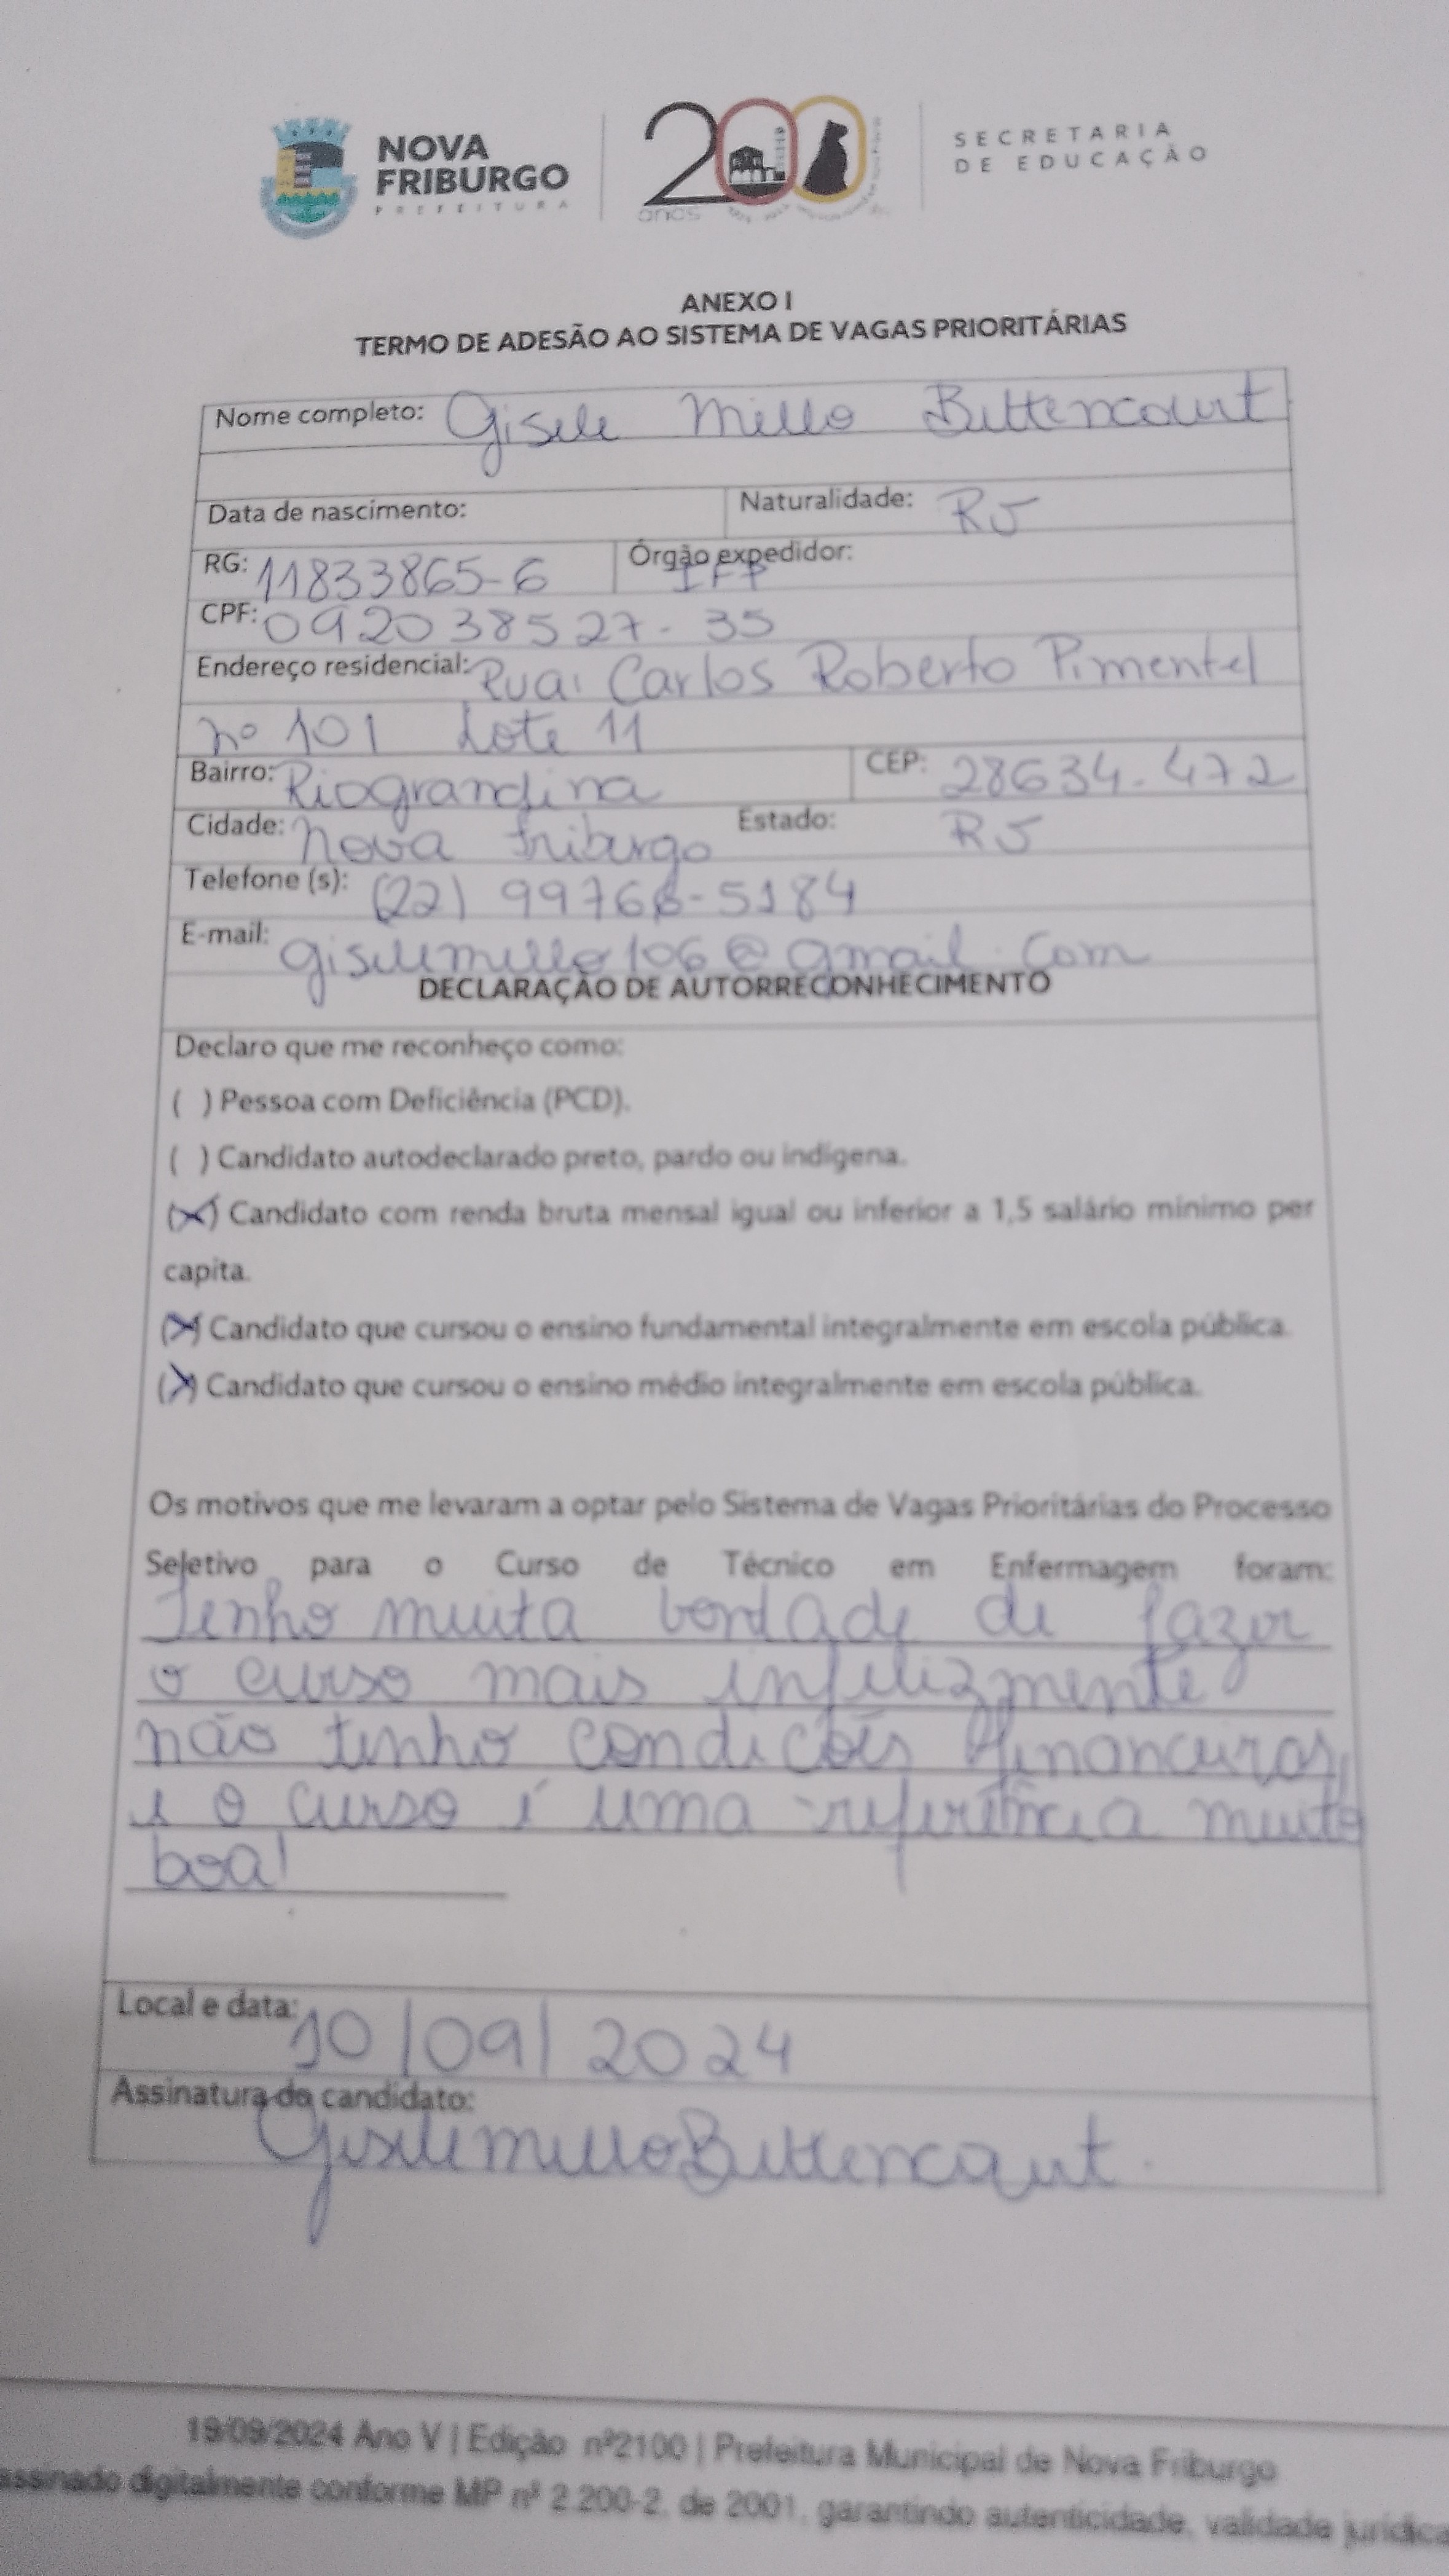 NOVA
FRIBURGO
PREFEITURA
200
anos
SECRETARIA
DE EDUCAÇÃO
ANEXO I
TERMO DE ADESÃO AO SISTEMA DE VAGAS PRIORITÁRIAS
Nome completo: Gisele Mello Bittencourt
Data de nascimento: Naturalidade: RJ
RG: 11833865-6 Órgão expedidor: IFP
CPF: 092038527-35
Endereço residencial: Rua: Carlos Roberto Pimentel
nº 101 Lote 11
Bairro: Riograndina CEP: 28634-472
Cidade: Nova Friburgo Estado: RJ
Telefone (s): (22) 99766-5184
E-mail: giselemello106@gmail.com
DECLARAÇÃO DE AUTORRECONHECIMENTO
Declaro que me reconheço como:
( ) Pessoa com Deficiência (PCD).
( ) Candidato autodeclarado preto, pardo ou indígena.
(X) Candidato com renda bruta mensal igual ou inferior a 1,5 salário mínimo per
capita.
(X) Candidato que cursou o ensino fundamental integralmente em escola pública.
(X) Candidato que cursou o ensino médio integralmente em escola pública.
Os motivos que me levaram a optar pelo Sistema de Vagas Prioritárias do Processo
Seletivo para o Curso de Técnico em Enfermagem foram:
Tenho muita bontade de fazer
o curso mais infelizmente
não tenho condições financeiras,
e o curso é uma referência muito
boa!
Local e data: 10/09/2024
Assinatura do candidato:
Gisele Mello Bittencourt
19/09/2024 Ano V | Edição nº2100 | Prefeitura Municipal de Nova Friburgo
assinado digitalmente conforme MP nº 2.200-2, de 2001, garantindo autenticidade, validade jurídica